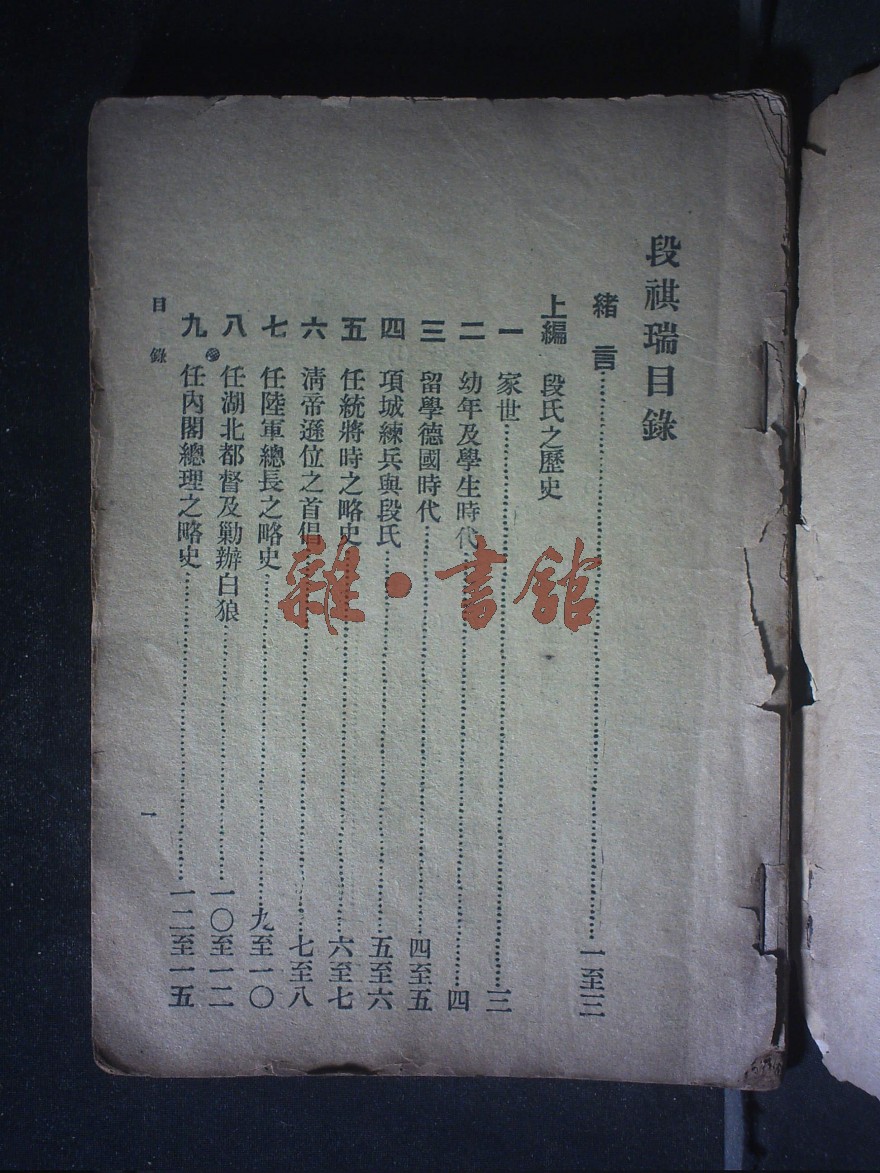 段祺瑞目錄
緒言……一至三
上編 段氏之歷史
一 家世……三
二 幼年及學生時代……四
三 留學德國時代……四至五
四 項城練兵與段氏……五至六
五 任統將時之略史……六至七
六 清帝遜位之首倡……七至八
七 任陸軍總長之略史……九至一〇
八 任湖北都督及勦辦白狼……一〇至一二
九 任內閣總理之略史……一二至一五
目錄
一
雜·書館